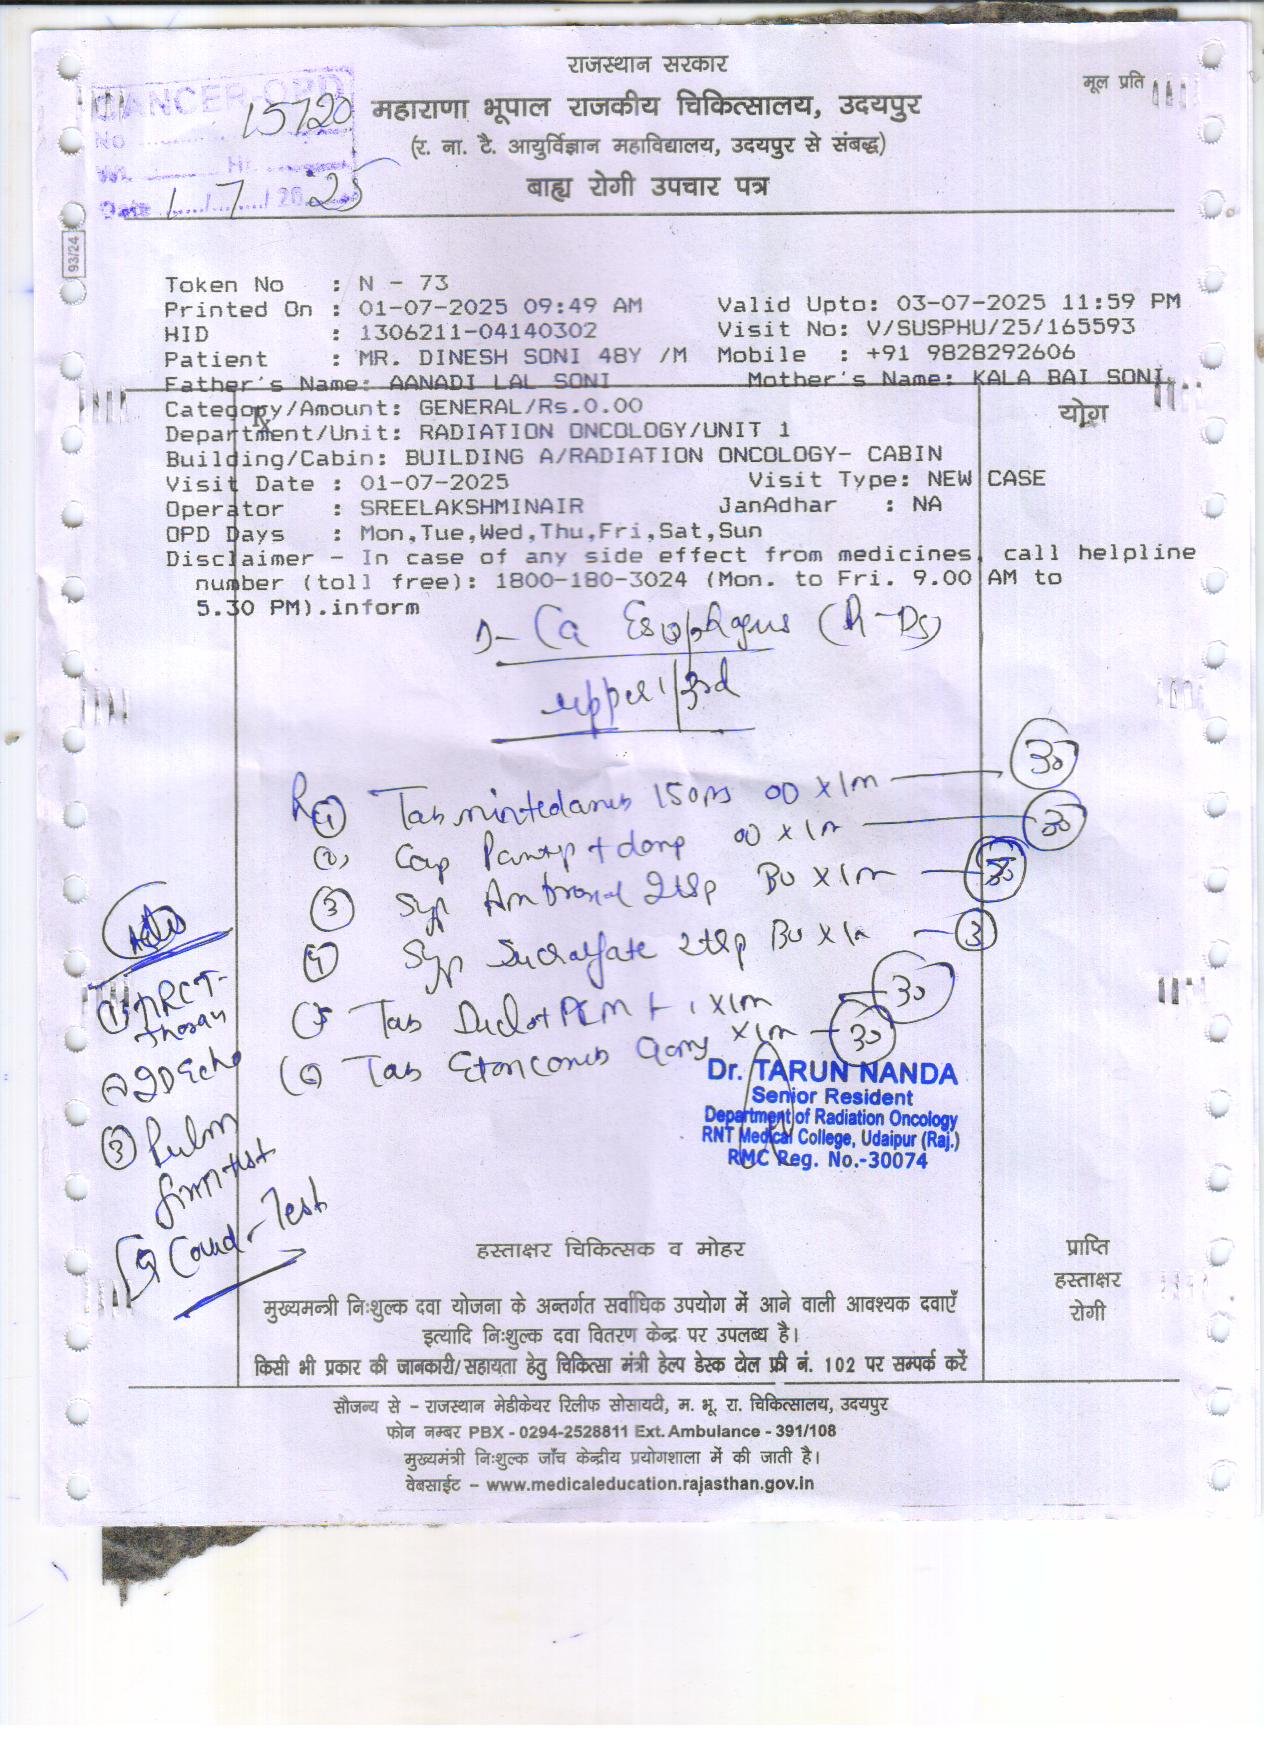 राजस्थान सरकार
मूल प्रति
CANCER OPD
No 15720
महाराणा भूपाल राजकीय चिकित्सालय, उदयपुर
(र. ना. टै. आयुर्विज्ञान महाविद्यालय, उदयपुर से संबद्ध)
Date 1/7/2025
बाह्य रोगी उपचार पत्र
93/24
Token No : N - 73
Printed On : 01-07-2025 09:49 AM Valid Upto: 03-07-2025 11:59 PM
HID : 1306211-04140302 Visit No: V/SUSPHU/25/165593
Patient : MR. DINESH SONI 48Y /M Mobile : +91 9828292606
Father's Name: AANADI LAL SONI Mother's Name: KALA BAI SONI
Category/Amount: GENERAL/Rs.0.00
Rx
योग
Department/Unit: RADIATION ONCOLOGY/UNIT 1
Building/Cabin: BUILDING A/RADIATION ONCOLOGY- CABIN
Visit Date : 01-07-2025 Visit Type: NEW CASE
Operator : SREELAKSHMINAIR JanAdhar : NA
OPD Days : Mon,Tue,Wed,Thu,Fri,Sat,Sun
Disclaimer - In case of any side effect from medicines, call helpline
number (toll free): 1800-180-3024 (Mon. to Fri. 9.00 AM to
5.30 PM).inform
Ca Esophagus
upper 1/3rd
(1) Tab 150 OD x 1m 30
(2) Cap Pantop + domp OD x 1m 30
(3) Syp Ambroxol 2tsp x 1m
(4) Syp Sucralfate 2tsp 3
(5) Tab x 1m 30
(6) Tab x 1m 30
Adv
(1) HRCT-
Thorax
(2) 2D Echo
(3) Pulm
Test
Dr. TARUN NANDA
Senior Resident
Department of Radiation Oncology
RNT Medical College, Udaipur (Raj.)
RMC Reg. No.-30074
हस्ताक्षर चिकित्सक व मोहर
प्राप्ति
हस्ताक्षर
रोगी
मुख्यमन्त्री निःशुल्क दवा योजना के अन्तर्गत सर्वाधिक उपयोग में आने वाली आवश्यक दवाएँ
इत्यादि निःशुल्क दवा वितरण केन्द्र पर उपलब्ध है।
किसी भी प्रकार की जानकारी/सहायता हेतु चिकित्सा मंत्री हेल्प डेस्क टोल फ्री नं. 102 पर सम्पर्क करें
सौजन्य से - राजस्थान मेडीकेयर रिलीफ सोसायटी, म. भू. रा. चिकित्सालय, उदयपुर
फोन नम्बर PBX - 0294-2528811 Ext. Ambulance - 391/108
मुख्यमंत्री निःशुल्क जाँच केन्द्रीय प्रयोगशाला में की जाती है।
वेबसाईट - www.medicaleducation.rajasthan.gov.in